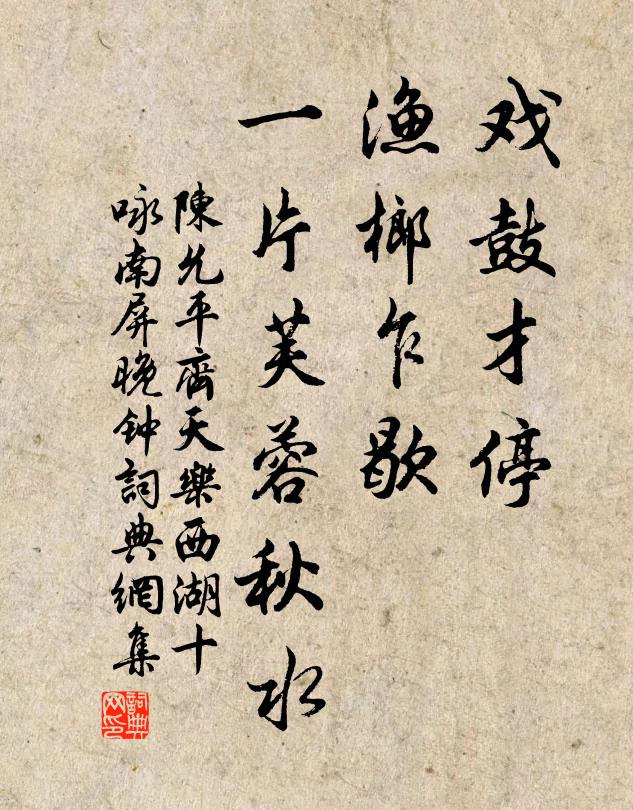 戏鼓才停
渔榔乍歇
一片芙蓉秋水
陳允平齊天樂西湖十
咏南屏晚钟詞典網集
詞典
网印